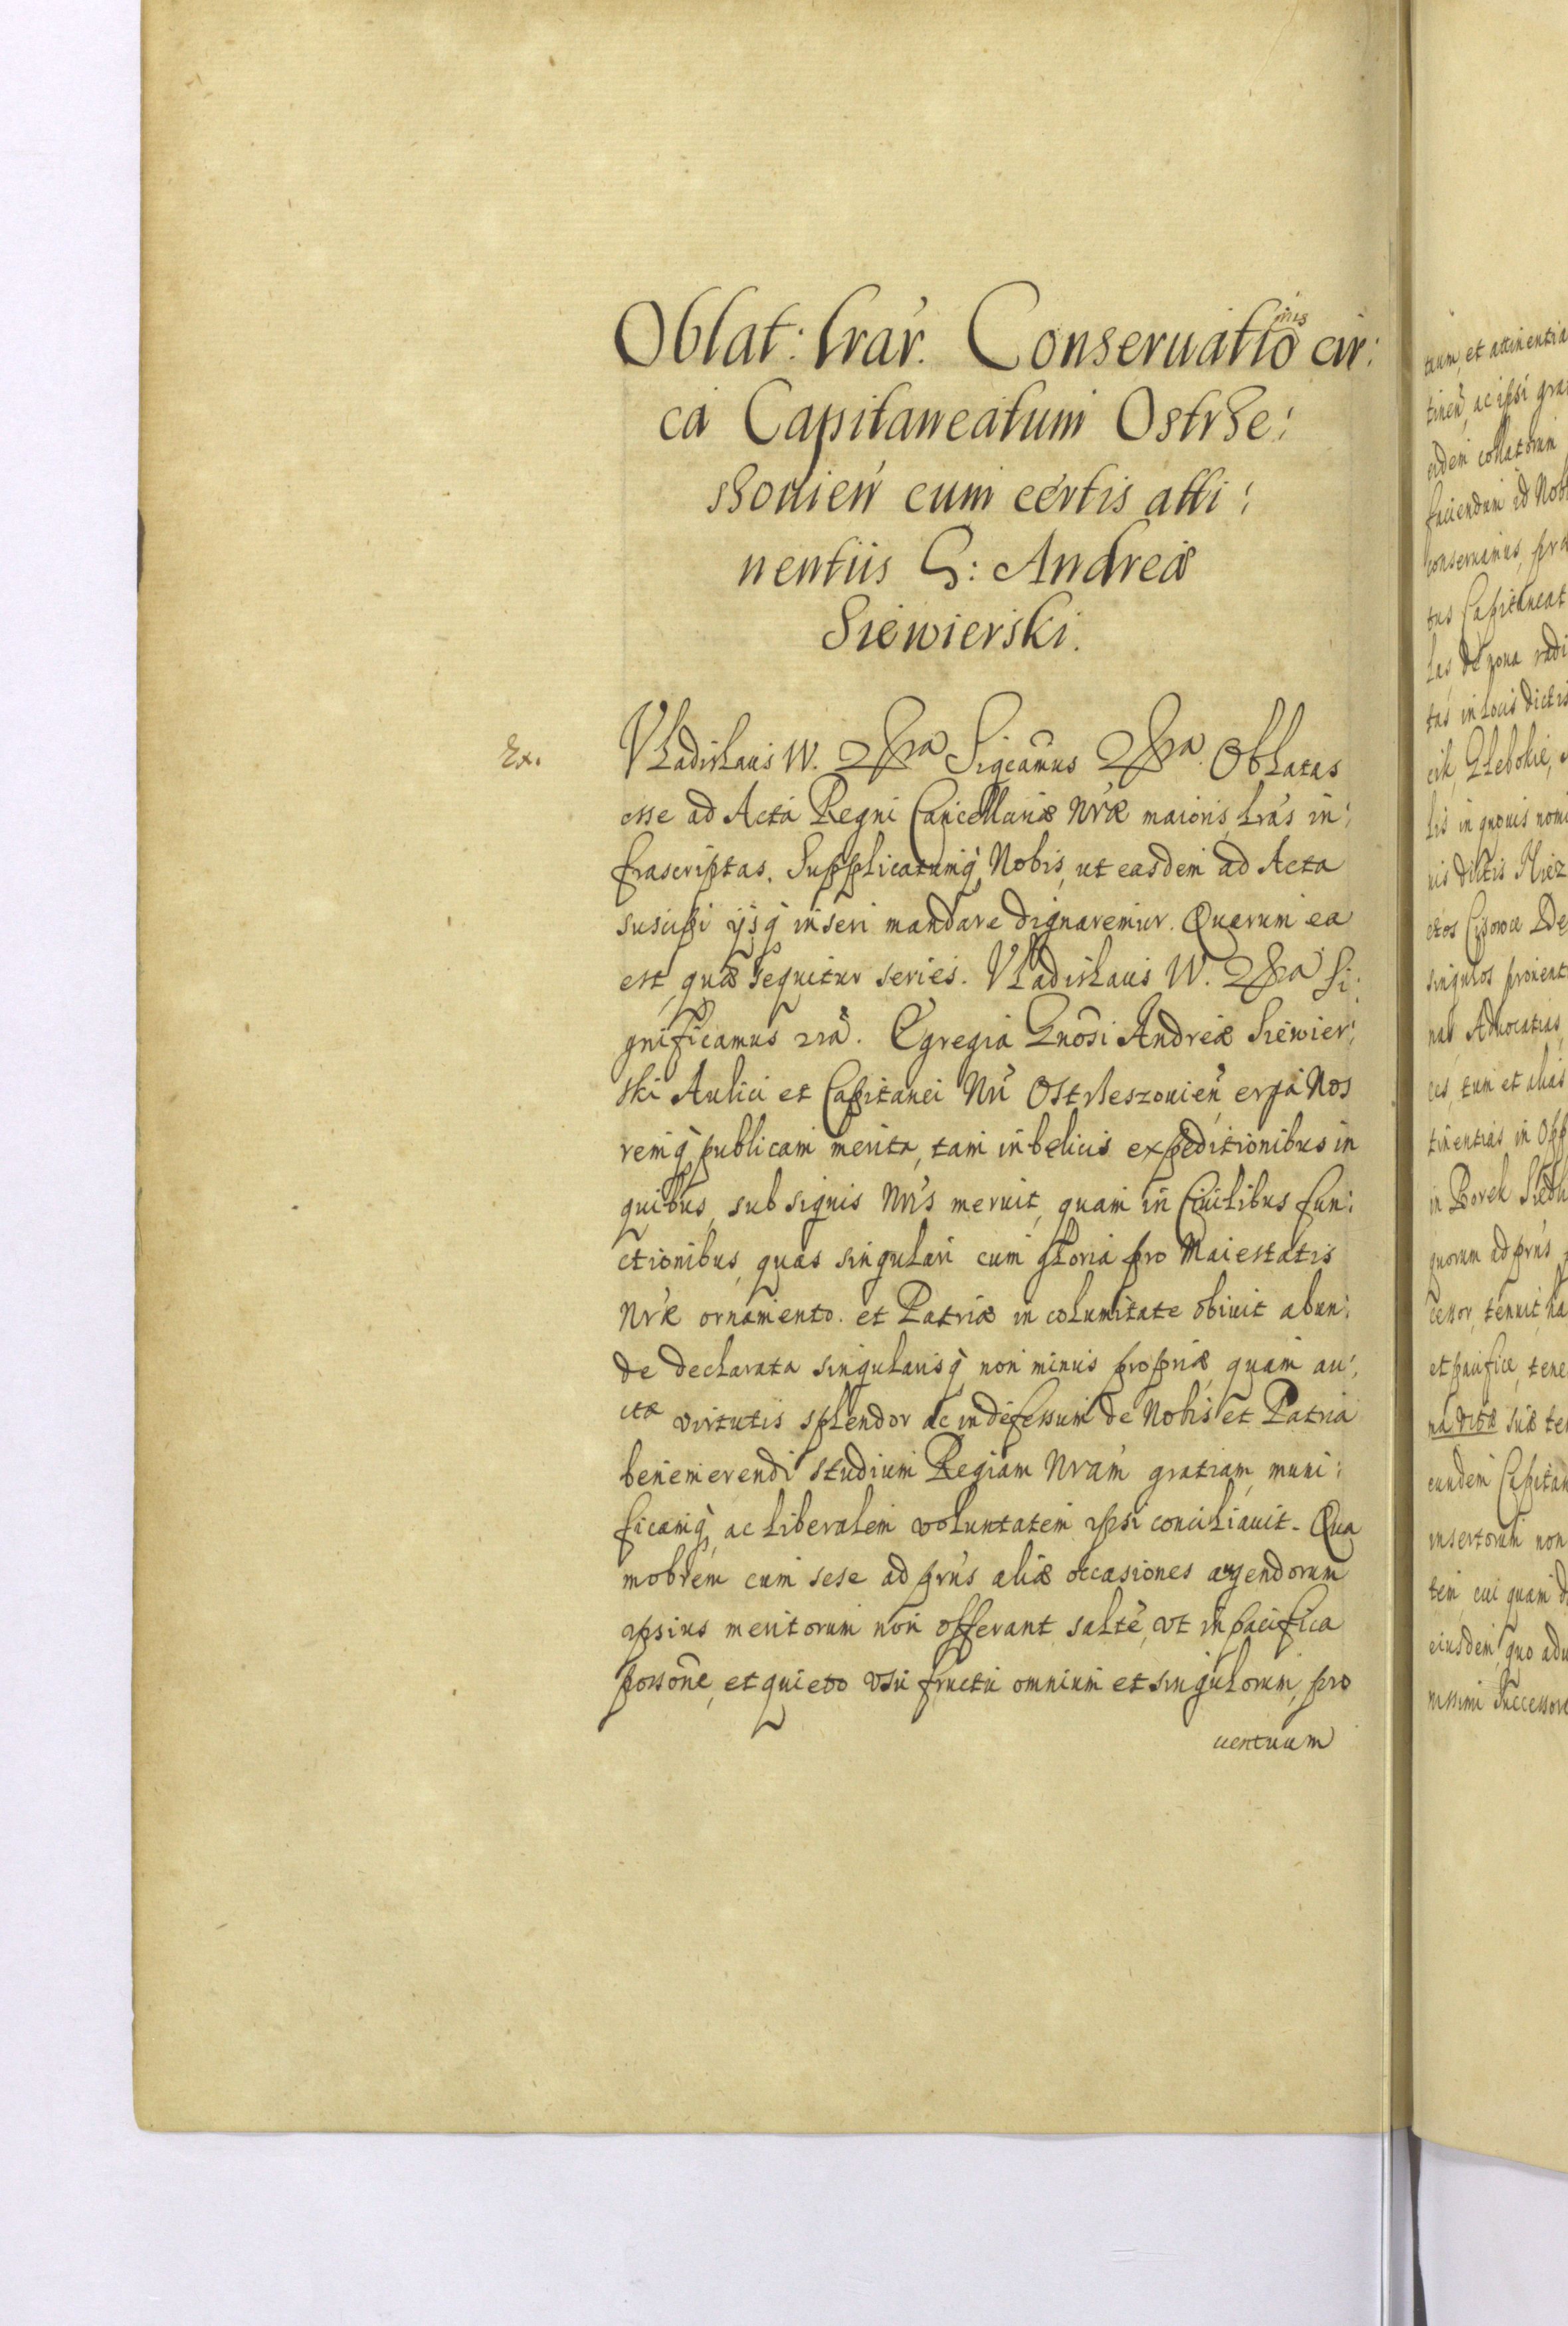 Oblat: lrar̃. Conseruatiõnis cir:
ca Capitaneatum Ostrze:
szouieñ cum certis atti:
nentiis G: Andreæ
Siewierski.
Ex.
Vladislaus IV. Sigcamus Oblatas
esse ad Acta Regni Cancellariæ Nr̃æ maioris, lrãs in:
frascriptas, Supplicatumq̃ Nobis, ut easdem ad Acta
suscipi ijsq̃ inseri mandare dignaremur. Quarum ea
est quæ sequitur series. Vladislaus IV. Si:
gnificamus Egregia Gnõsi Andreæ Siewier:
ski Aulici et Capitanei Nr̃i Ostrzeszouieñ, erga Nos
remq̃ publicam merita, tam in belicis expeditionibus in
quibus, sub signis Nr̃is meruit, quam in Ciuilibus fun:
ctionibus, quas singulari cum gloria pro Maiestatis
Nr̃æ ornamento. et Patriæ in columitate obiuit abun:
de declarata singularisq̃ non minus propriæ quam au:
itæ virtutis splendor ac indefessum de Nobis et Patria
benemerendi studium Regiam Nrãm gratiam, muni:
ficamq̃, ac liberalem voluntatem ipsi conciliauit. Qua
mobrem cum sese ad prñs aliæ occasiones augendorum
ipsius meritorum non offerant saltẽ, vt in pacifica
possõne, et quieto vsu fructu omnium et singulorum, pro
uentuum
tuum, et attinentia
tineñ, ac ipsi gra
eidem collatorum
faciendum id Nob
conseruamus, pra
tus Capitaneat
las de zona radi
tas in locis dictis
cik, Glebokie,
lis in quouis nomi
nis dictis
singulos prouent
nas Aduocatias,
ces, tum et alias
tinentias in Opp
in Borek
quorum ad prñs
cessor, tenuit, ha
et pacifice, tene
na vitæ suæ te
eundem Capitan
insertorum non
tem, cui quam d
eiusdem, quo adu
nissimi Successore